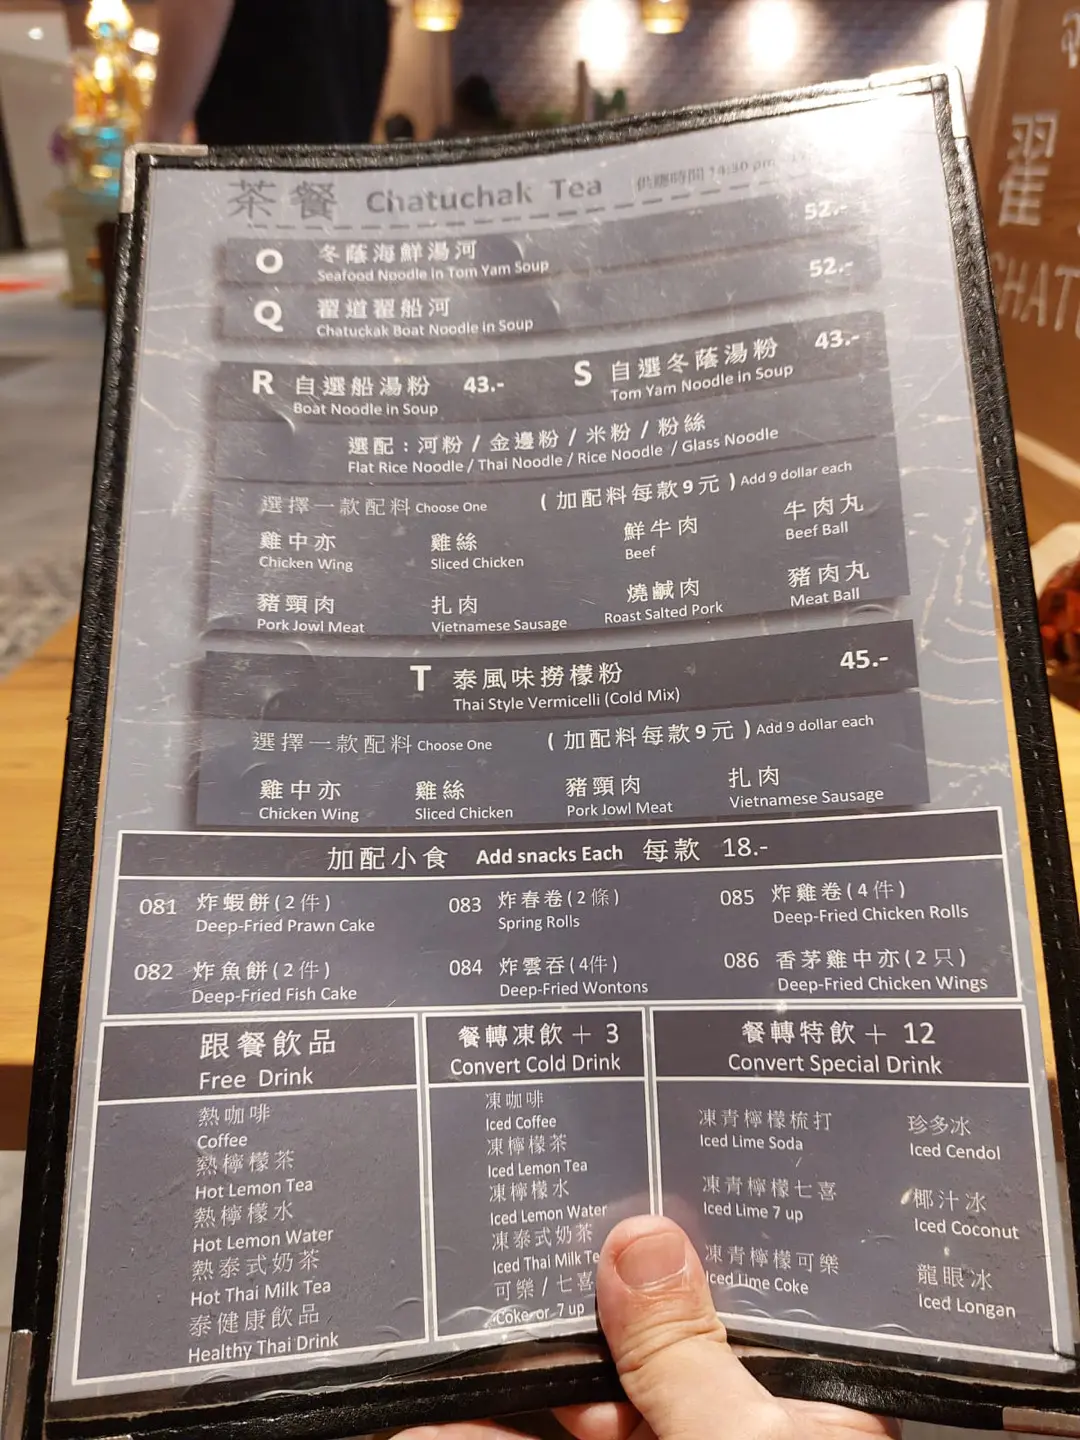 茶餐 Chatuchak Tea 供應時間 14:30 pm
O 冬蔭海鮮湯河 52.-
Seafood Noodle in Tom Yam Soup
Q 翟道翟船河 52.-
Chatuckak Boat Noodle in Soup
R 自選船湯粉 43.-
Boat Noodle in Soup
S 自選冬蔭湯粉 43.-
Tom Yam Noodle in Soup
選配：河粉 / 金邊粉 / 米粉 / 粉絲
Flat Rice Noodle / Thai Noodle / Rice Noodle / Glass Noodle
選擇一款配料 Choose One (加配料每款9元) Add 9 dollar each
雞中亦 雞絲 鮮牛肉 牛肉丸
Chicken Wing Sliced Chicken Beef Beef Ball
豬頸肉 扎肉 燒鹹肉 豬肉丸
Pork Jowl Meat Vietnamese Sausage Roast Salted Pork Meat Ball
T 泰風味撈檬粉 45.-
Thai Style Vermicelli (Cold Mix)
選擇一款配料 Choose One (加配料每款9元) Add 9 dollar each
雞中亦 雞絲 豬頸肉 扎肉
Chicken Wing Sliced Chicken Pork Jowl Meat Vietnamese Sausage
加配小食 Add snacks Each 每款 18.-
081 炸蝦餅(2件) 083 炸春卷(2條) 085 炸雞卷(4件)
Deep-Fried Prawn Cake Spring Rolls Deep-Fried Chicken Rolls
082 炸魚餅(2件) 084 炸雲吞(4件) 086 香茅雞中亦(2只)
Deep-Fried Fish Cake Deep-Fried Wontons Deep-Fried Chicken Wings
跟餐飲品
Free Drink
熱咖啡
Coffee
熱檸檬茶
Hot Lemon Tea
熱檸檬水
Hot Lemon Water
熱泰式奶茶
Hot Thai Milk Tea
泰健康飲品
Healthy Thai Drink
餐轉凍飲＋ 3
Convert Cold Drink
凍咖啡
Iced Coffee
凍檸檬茶
Iced Lemon Tea
凍檸檬水
Iced Lemon Water
凍泰式奶茶
Iced Thai Milk Te
可樂 / 七喜
Coke or 7 up
餐轉特飲＋ 12
Convert Special Drink
凍青檸檬梳打 珍多冰
Iced Lime Soda Iced Cendol
凍青檸檬七喜 椰汁冰
Iced Lime 7 up Iced Coconut
凍青檸檬可樂 龍眼冰
Iced Lime Coke Iced Longan
翟
CHATU